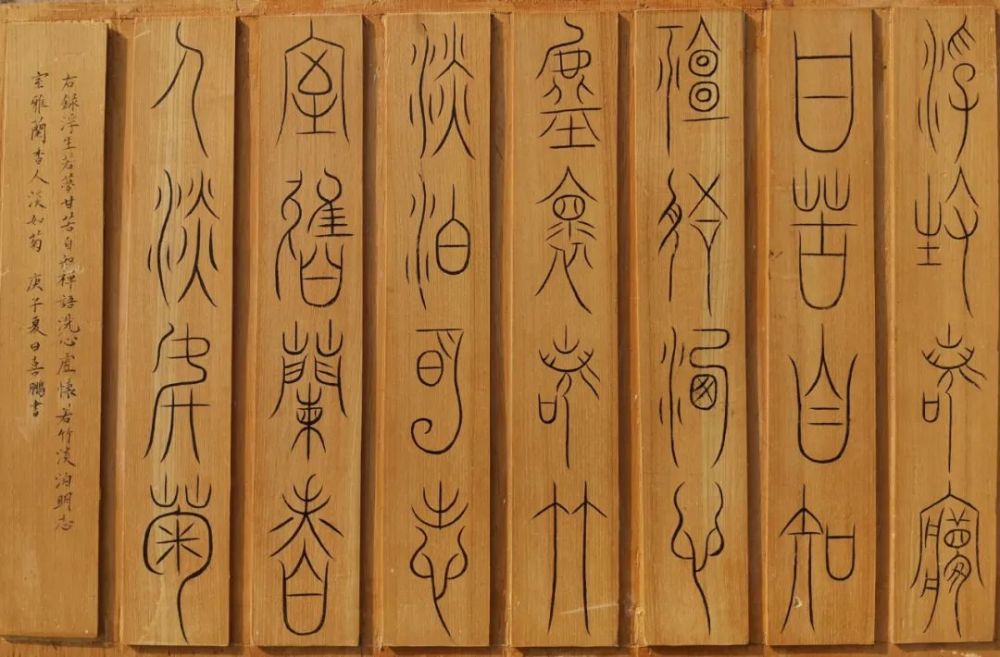 浮生若夢
甘苦自知
禪語洗心
虛懷若竹
淡泊明志
室雅蘭香
人淡如菊
右錄浮生若夢甘苦自知禪語洗心虛懷若竹淡泊明志
室雅蘭香人淡如菊 庚子夏日喜鵬書